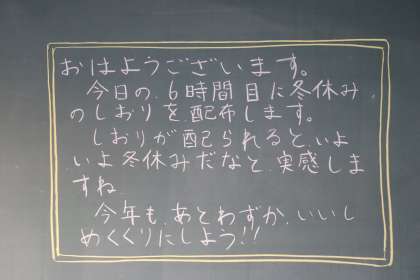 おはようございます。
今日の、6時間目に冬休み
のしおりを、配布します。
しおりが配られると、いよ
いよ冬休みだなと、実感しま
すね
今年も、あとわずか、いいし
めくくりにしよう!!